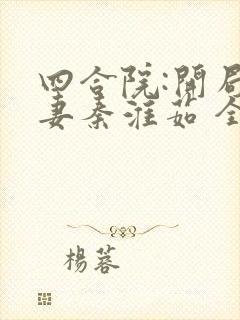 四合院:開局
妻秦淮茹 全
楊蓉